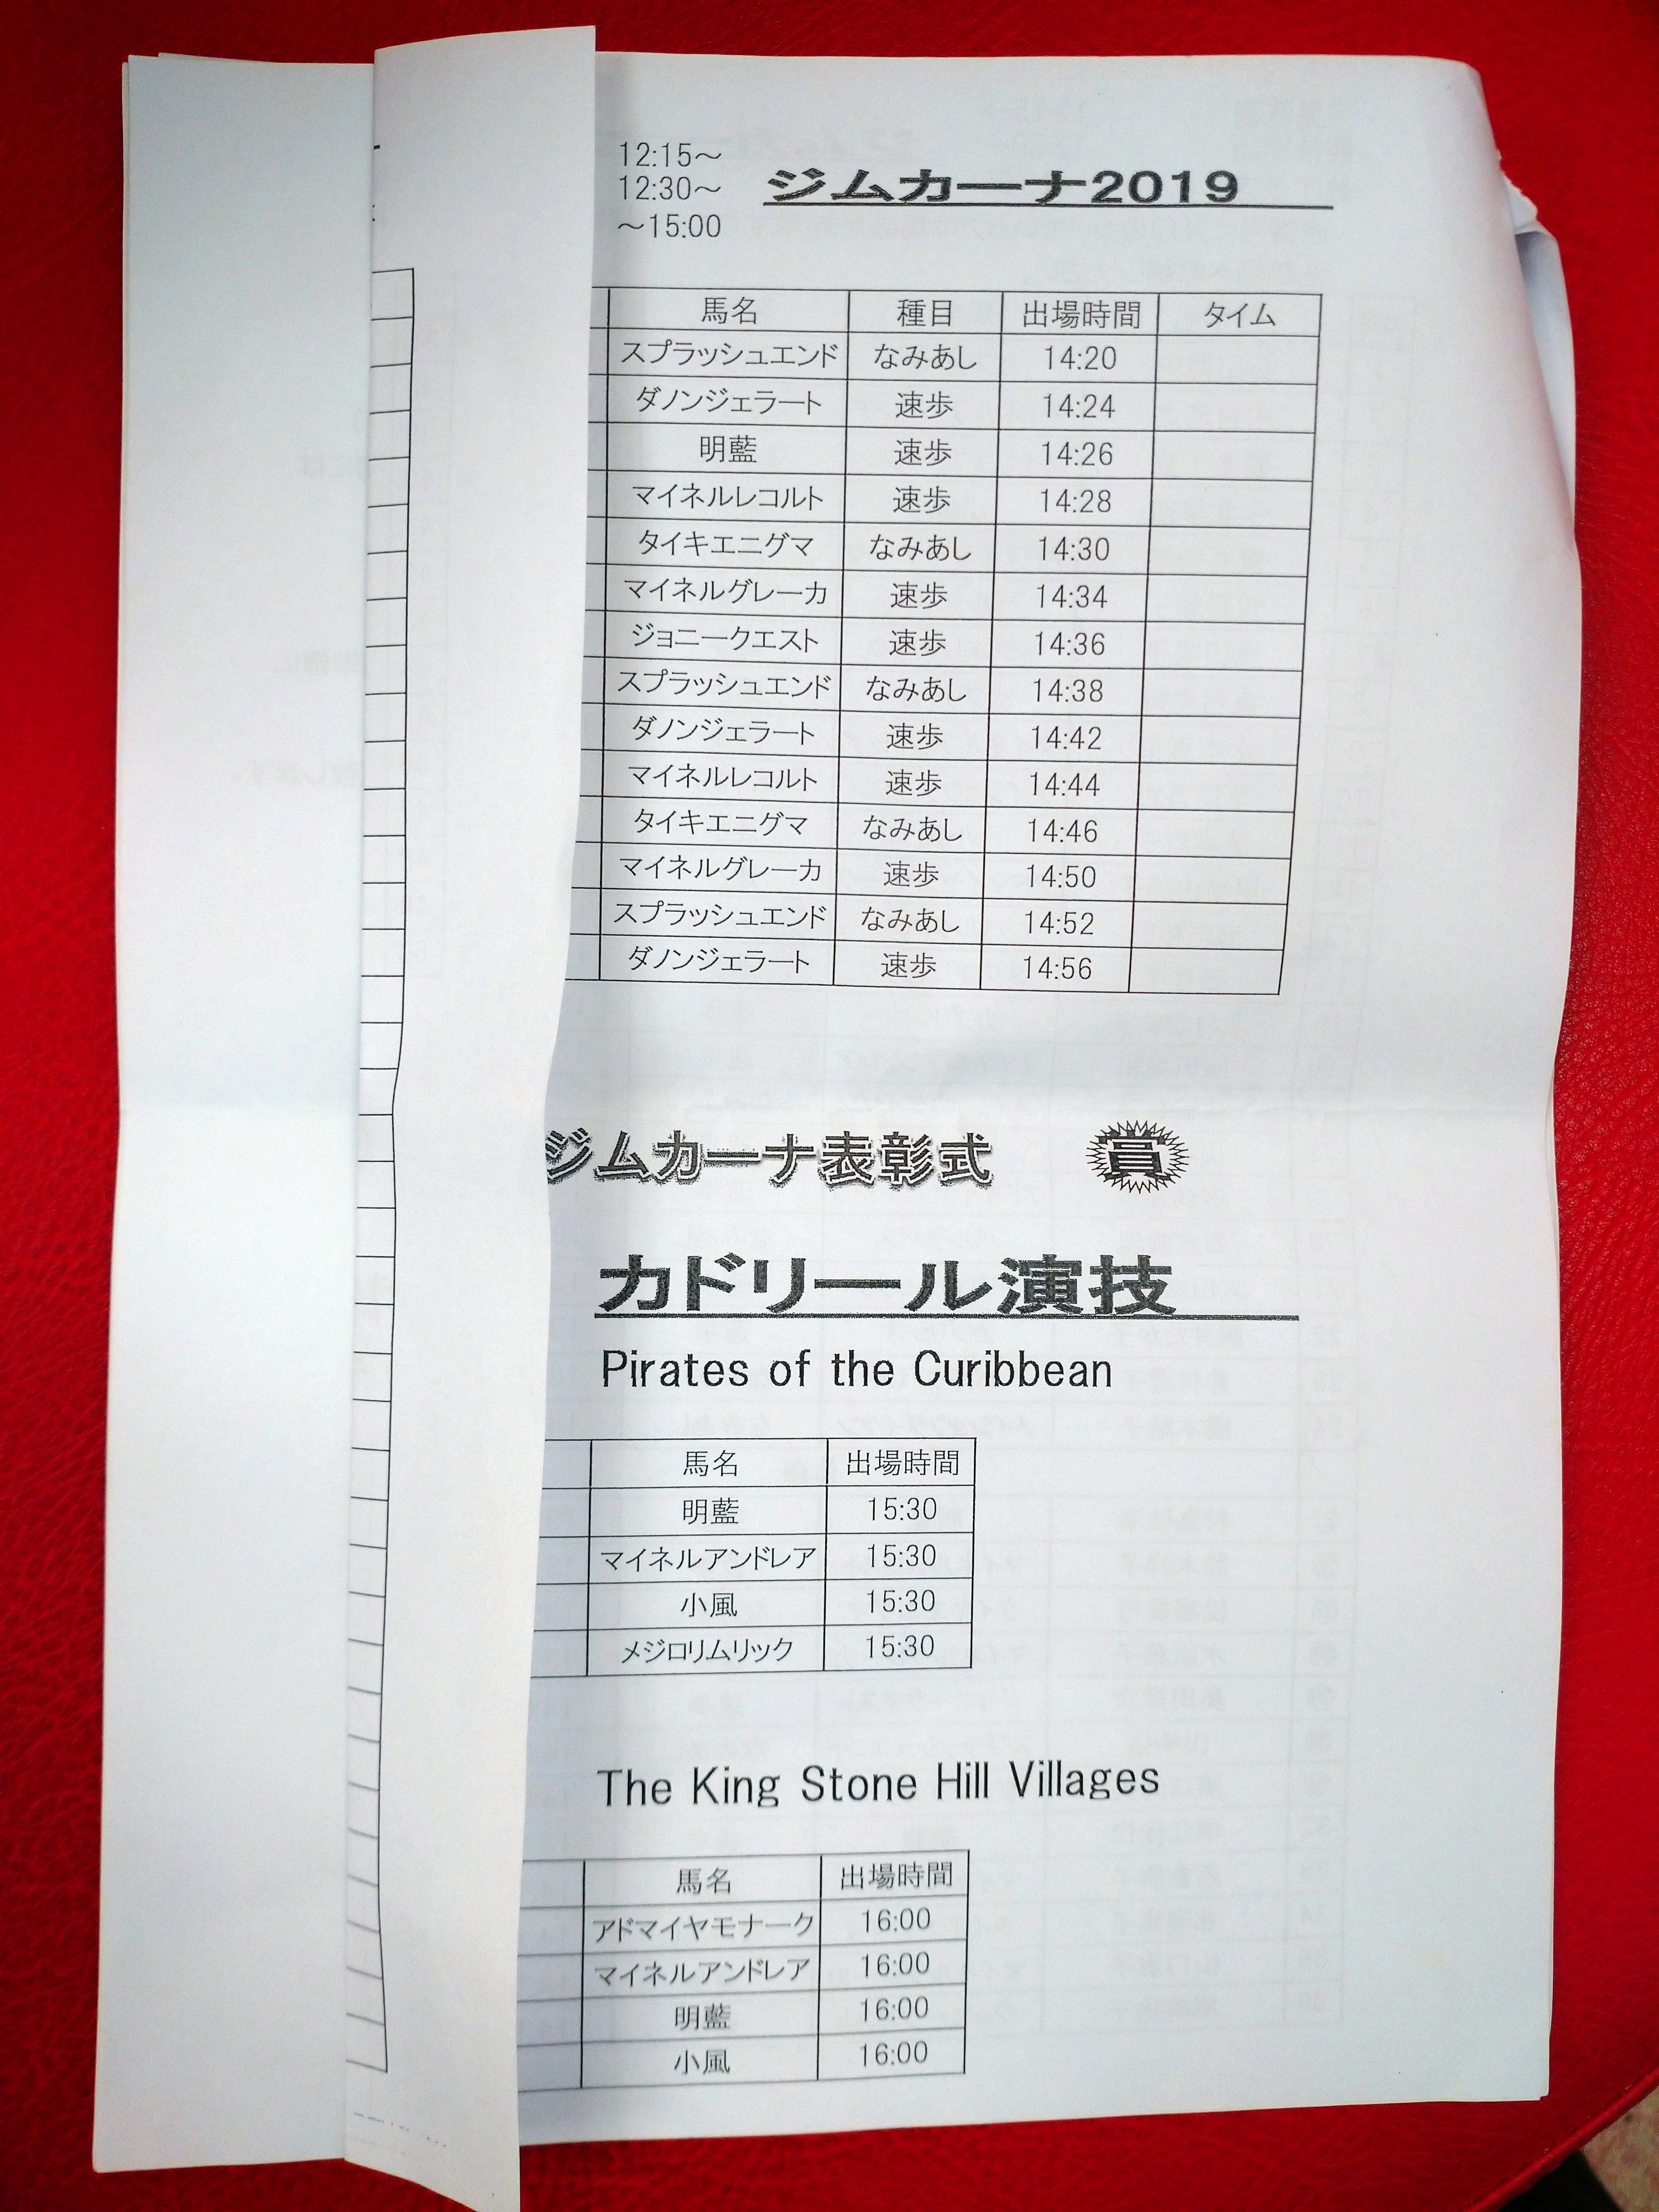 12:15～
12:30～
～15:00
ジムカーナ2019
馬名 種目 出場時間 タイム
スプラッシュエンド なみあし 14:20
ダノンジェラート 速歩 14:24
明藍 速歩 14:26
マイネルレコルト 速歩 14:28
タイキエニグマ なみあし 14:30
マイネルグレーカ 速歩 14:34
ジョニークエスト 速歩 14:36
スプラッシュエンド なみあし 14:38
ダノンジェラート 速歩 14:42
マイネルレコルト 速歩 14:44
タイキエニグマ なみあし 14:46
マイネルグレーカ 速歩 14:50
スプラッシュエンド なみあし 14:52
ダノンジェラート 速歩 14:56
ジムカーナ表彰式 賞
カドリール演技
Pirates of the Curibbean
馬名 出場時間
明藍 15:30
マイネルアンドレア 15:30
小風 15:30
メジロリムリック 15:30
The King Stone Hill Villages
馬名 出場時間
アドマイヤモナーク 16:00
マイネルアンドレア 16:00
明藍 16:00
小風 16:00